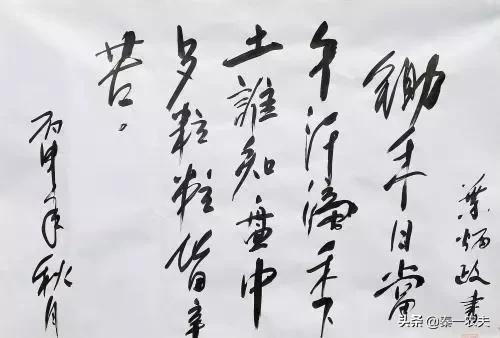 葉炳政書
鋤禾日當
午汗滴禾下
土誰知盤中
歺粒粒皆辛
苦。
丙申年秋月
头条 @泰一农夫